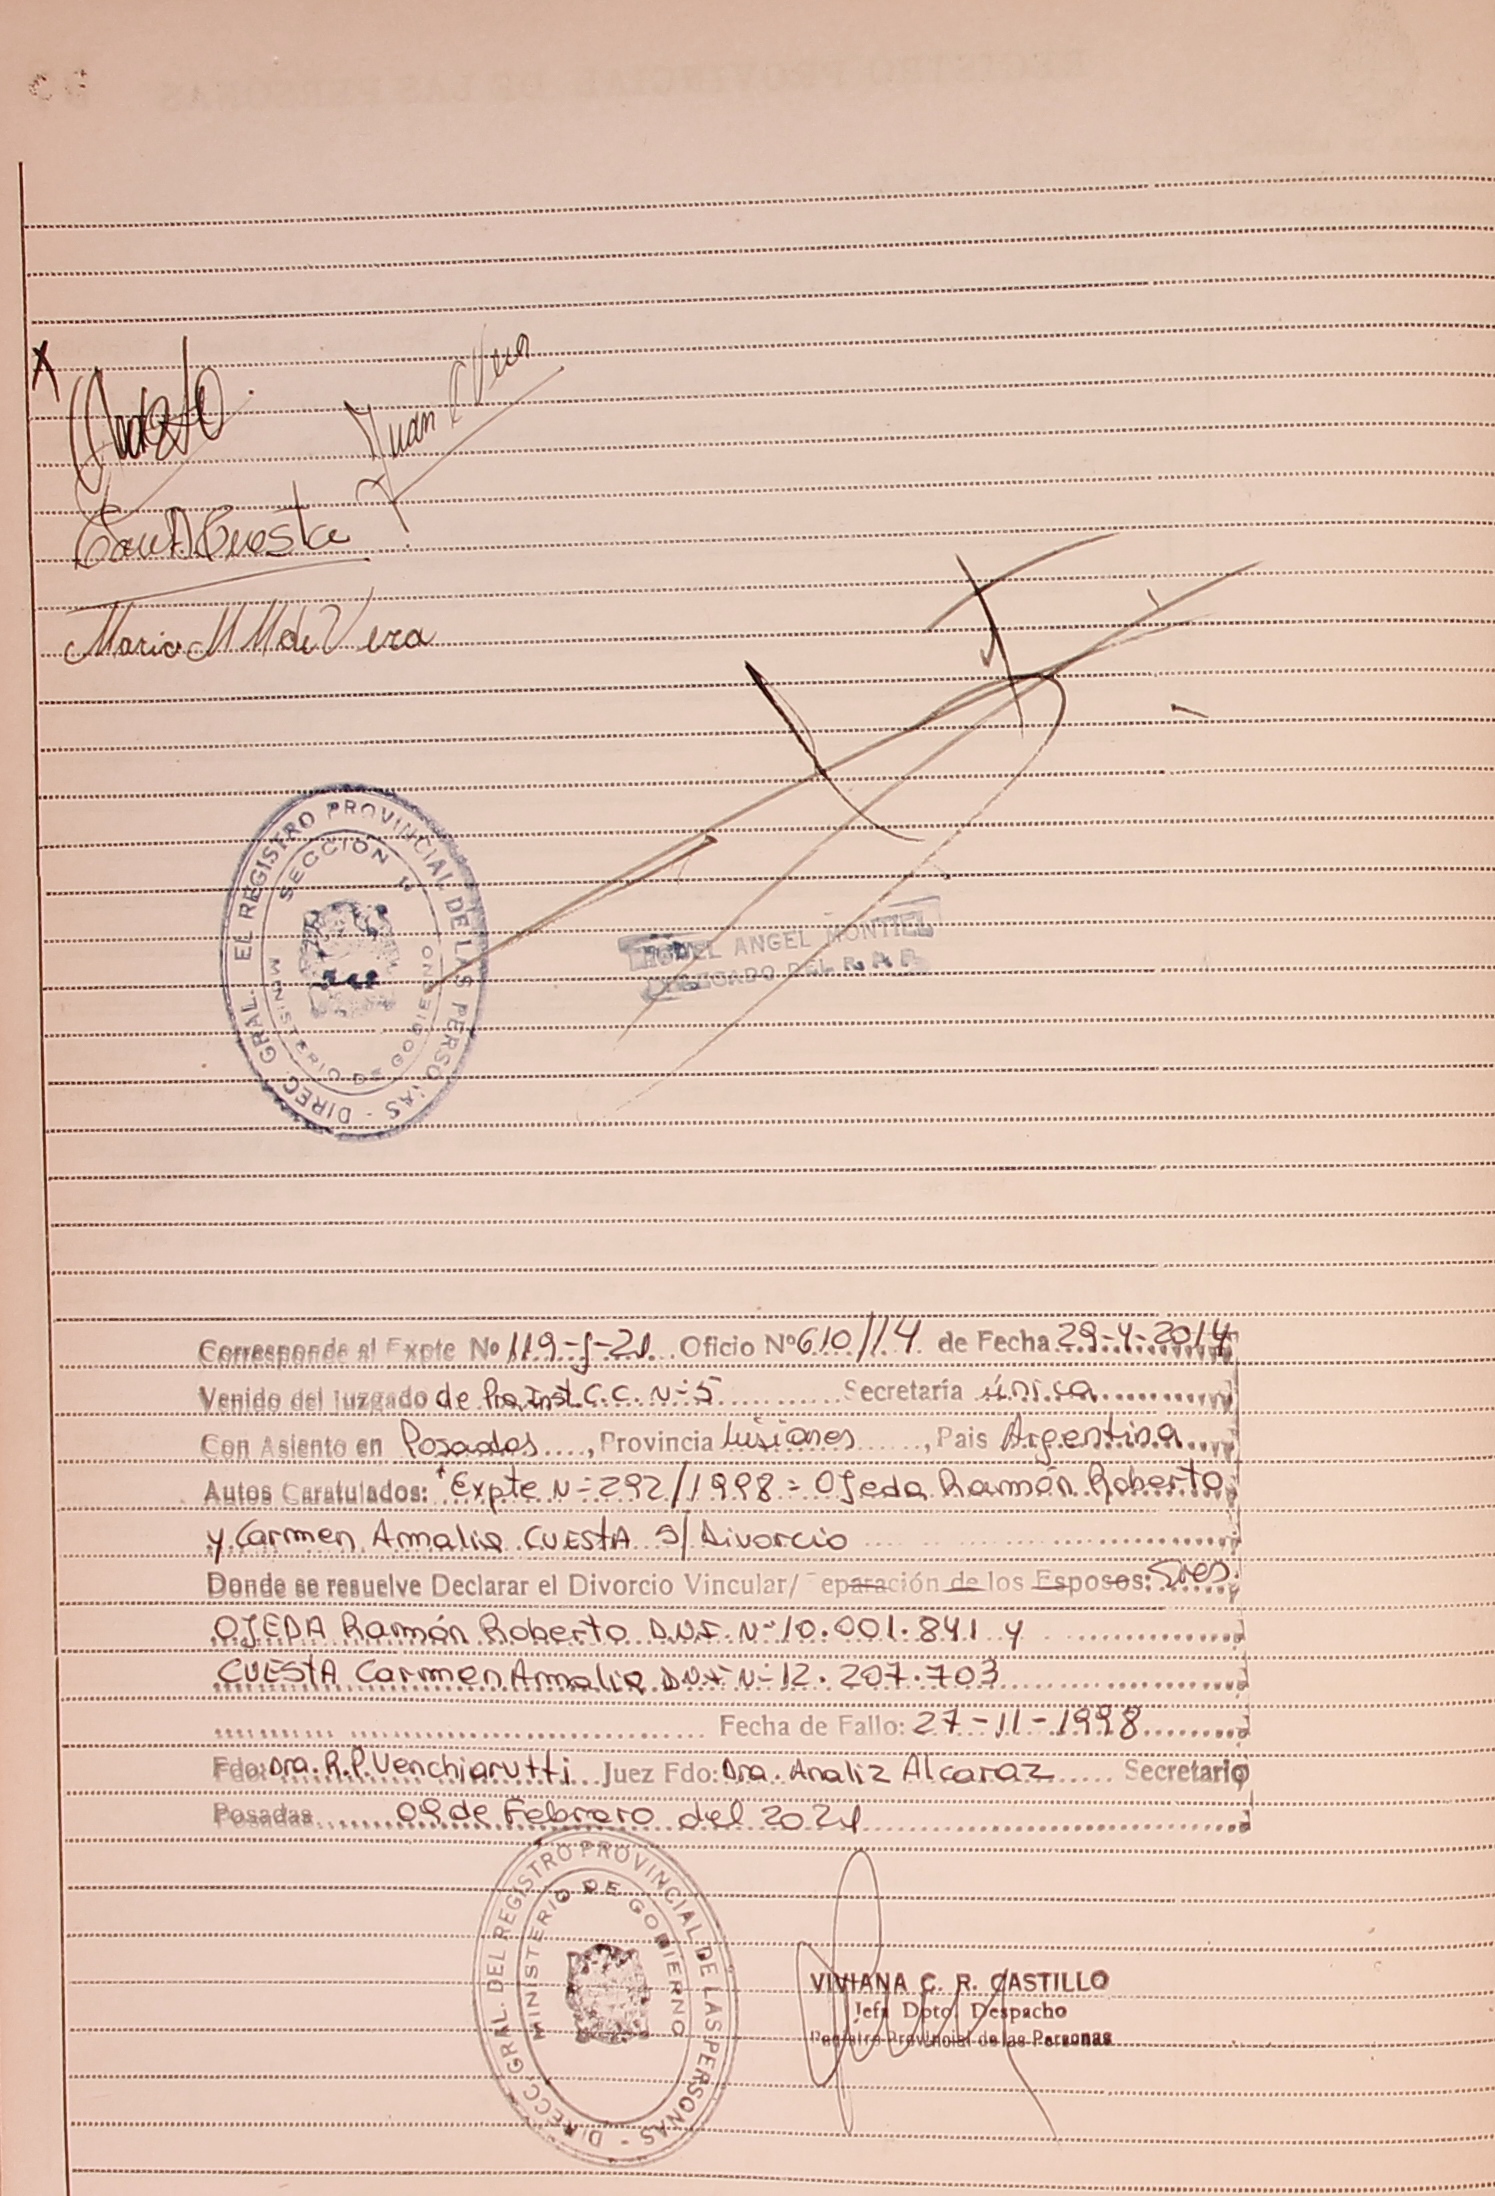 Juan C Vera
Carm A Cuesta
Maria M M de Vera
DIREC. GRAL. EL REGISTRO PROVINCIAL DE LAS PERSONAS -
SECCION 1ª
MINISTERIO DE GOBIERNO
MIGUEL ANGEL MONTIEL
DELEGADO DEL R. P. P.
Corresponde al Expte No 119-J-21 Oficio Nº 610/14 de Fecha 29-4-2014
Venido del Juzgado de Pra. Inst. C.C. N=5 Secretaría única
Con Asiento en Posadas, Provincia Misiones, Pais Argentina
Autos Caratulados: "Expte N=292/1998= OJeda Ramón Roberto
y Carmen Amalia CUESTA S/ Divorcio
Donde se resuelve Declarar el Divorcio Vincular/ Separación de los Esposos: Sres.
OJEDA Ramón Roberto D.N.I. N=10.001.841 y
CUESTA Carmen Amalia D.N.I N=12.207.703
Fecha de Fallo: 27-11-1998
Fdo: Dra. R.P. Venchiarutti Juez Fdo: Dra. Analiz Alcaraz Secretario
Posadas 09 de Febrero del 2021
DIRECC. GRAL. DEL REGISTRO PROVINCIAL DE LAS PERSONAS -
MINISTERIO DE GOBIERNO
VIVIANA C. R. CASTILLO
Jefa Dpto. Despacho
Registro Provincial de las Personas